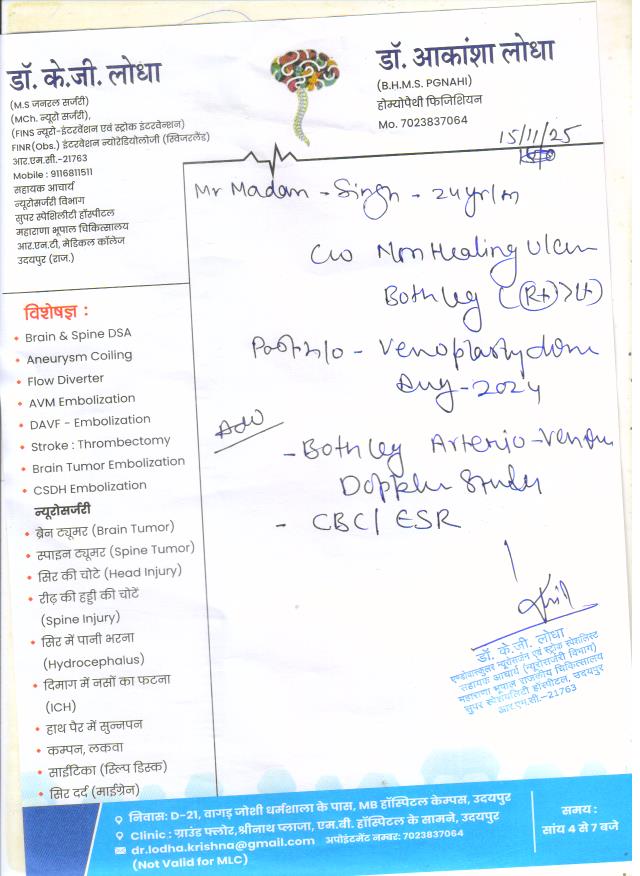 डॉ. के.जी. लोधा
(M.S जनरल सर्जरी)
(MCh. न्यूरो सर्जरी),
(FINS न्यूरो-इंटरवेंशन एवं स्ट्रोक इंटरवेन्शन)
FINR(Obs.) इंटरवेंशन न्योरेडियोलॉजी (स्विजरलैंड)
आर.एम.सी.-21763
Mobile : 9116811511
सहायक आचार्य
न्यूरोसर्जरी विभाग
सुपर स्पेशिलिटी हॉस्पीटल
महाराणा भूपाल चिकित्सालय
आर.एन.टी. मेडिकल कॉलेज
उदयपुर (राज.)
डॉ. आकांशा लोधा
(B.H.M.S. PGNAHI)
होम्योपैथी फिजिशियन
Mo. 7023837064
15/11/25
Mr Madan - Singh - 24yr/m
C/o Non Healing Ulcer
Both leg ((Rt)>Lt)
Past H/o - Venoplasty done
Aug-2024
Adv
- Both leg Arterio-Venous
Doppler Study
- CBC/ ESR
विशेषज्ञ :
• Brain & Spine DSA
• Aneurysm Coiling
• Flow Diverter
• AVM Embolization
• DAVF - Embolization
• Stroke : Thrombectomy
• Brain Tumor Embolization
• CSDH Embolization
न्यूरोसर्जरी
• ब्रेन ट्यूमर (Brain Tumor)
• स्पाइन ट्यूमर (Spine Tumor)
• सिर की चोटे (Head Injury)
• रीढ़ की हड्डी की चोटें
(Spine Injury)
• सिर में पानी भरना
(Hydrocephalus)
• दिमाग में नसों का फटना
(ICH)
• हाथ पैर में सुन्नपन
• कम्पन, लकवा
• साईटिका (स्लिप डिस्क)
• सिर दर्द (माईग्रेन)
डॉ. के.जी. लोधा
एण्डोवास्कुलर न्यूरोसर्जन एवं स्ट्रोक स्पेशलिस्ट
सहायक आचार्य (न्यूरोसर्जरी विभाग)
महाराणा भूपाल राजकीय चिकित्सालय
सुपर स्पेशयलिटी हॉस्पीटल, उदयपुर
आर.एम.सी.-21763
निवास: D-21, वागड़ जोशी धर्मशाला के पास, MB हॉस्पिटल केम्पस, उदयपुर
Clinic : ग्राउंड फ्लोर,श्रीनाथ प्लाजा, एम.बी. हॉस्पिटल के सामने, उदयपुर
dr.lodha.krishna@gmail.com अपोइंटमेंट नम्बर: 7023837064
(Not Valid for MLC)
समय :
सांय 4 से 7 बजे